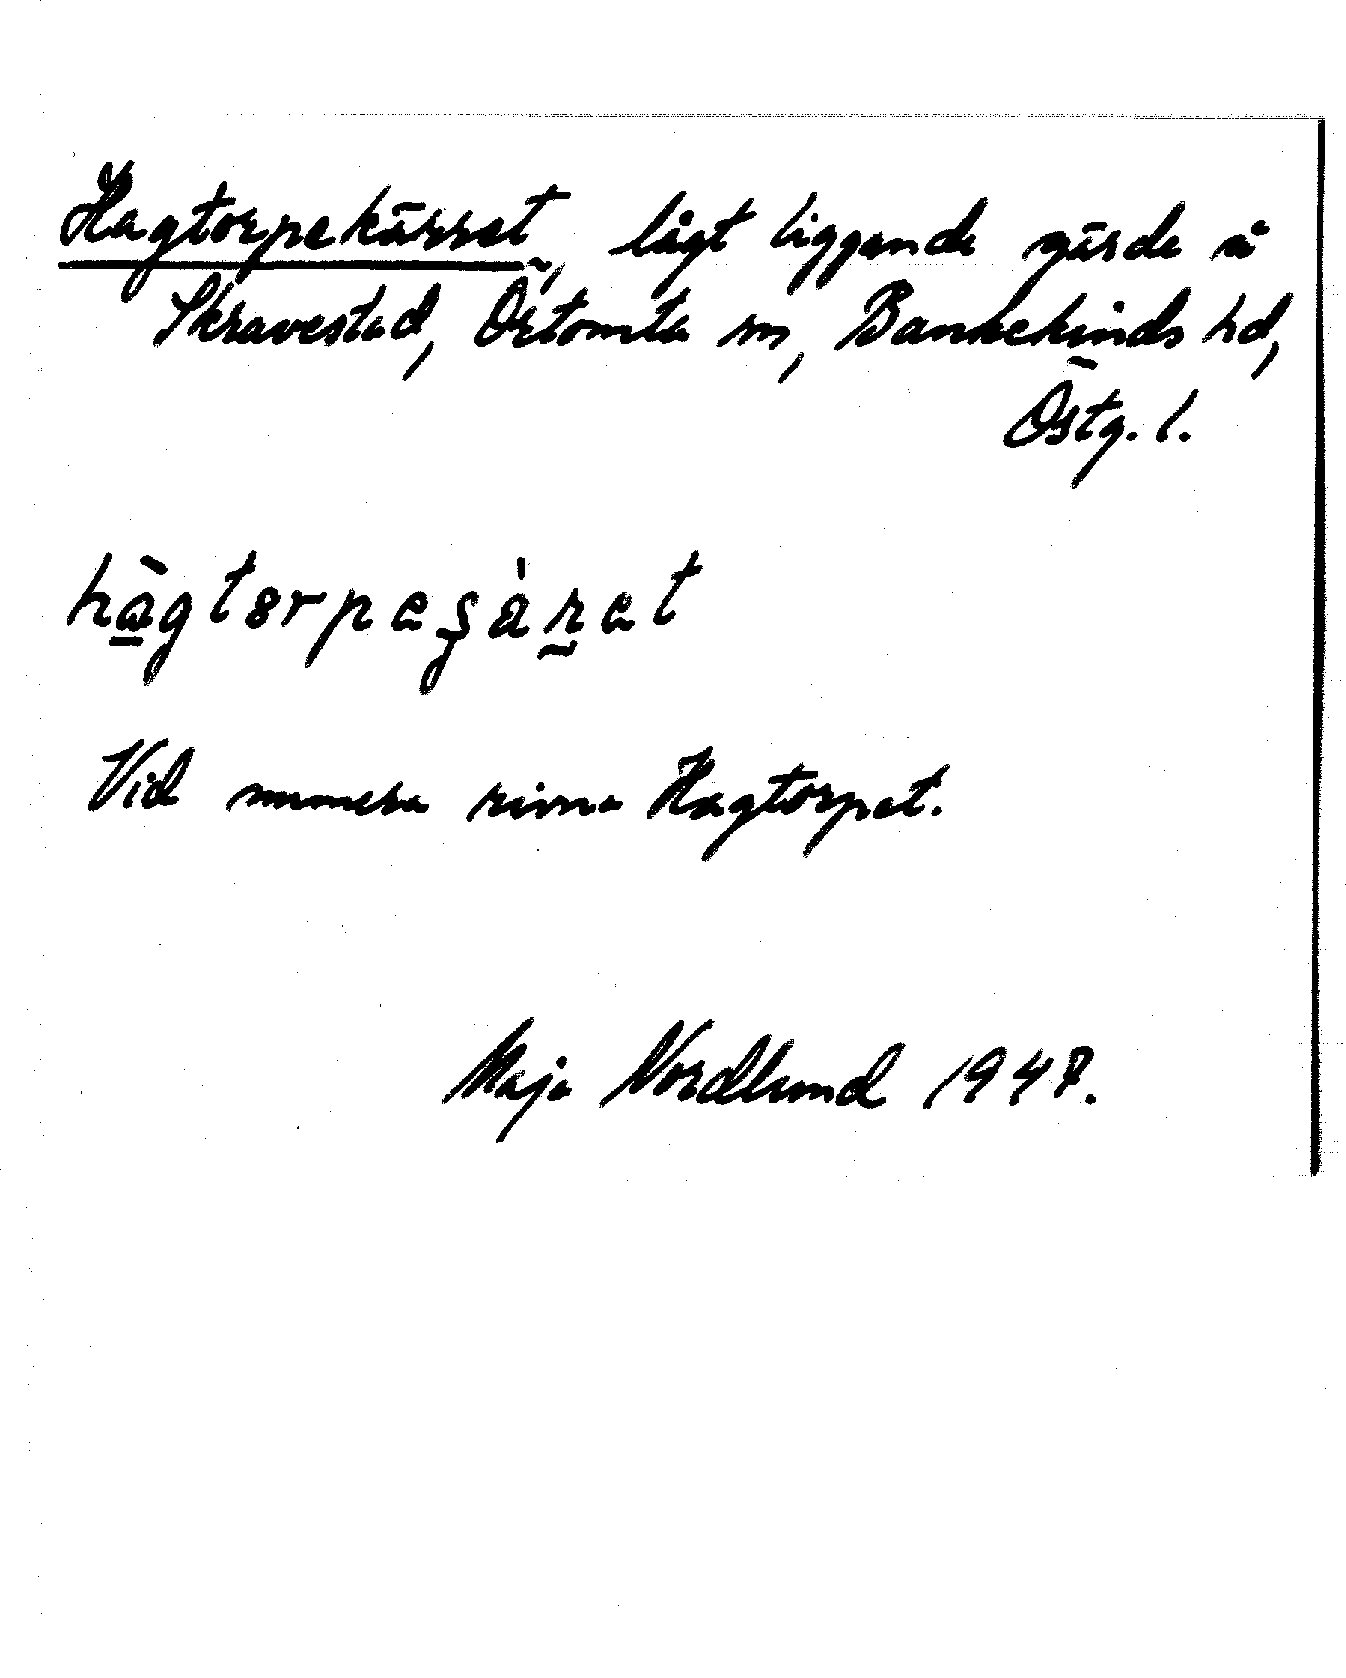 Hagtorpekärret, lågt liggende gärde å
Skravestad, Örtomta sn, Bankekinds hd,
Östg. l.
Vid numera rivna Hagtorpet.
Maja Nordlund 1947.